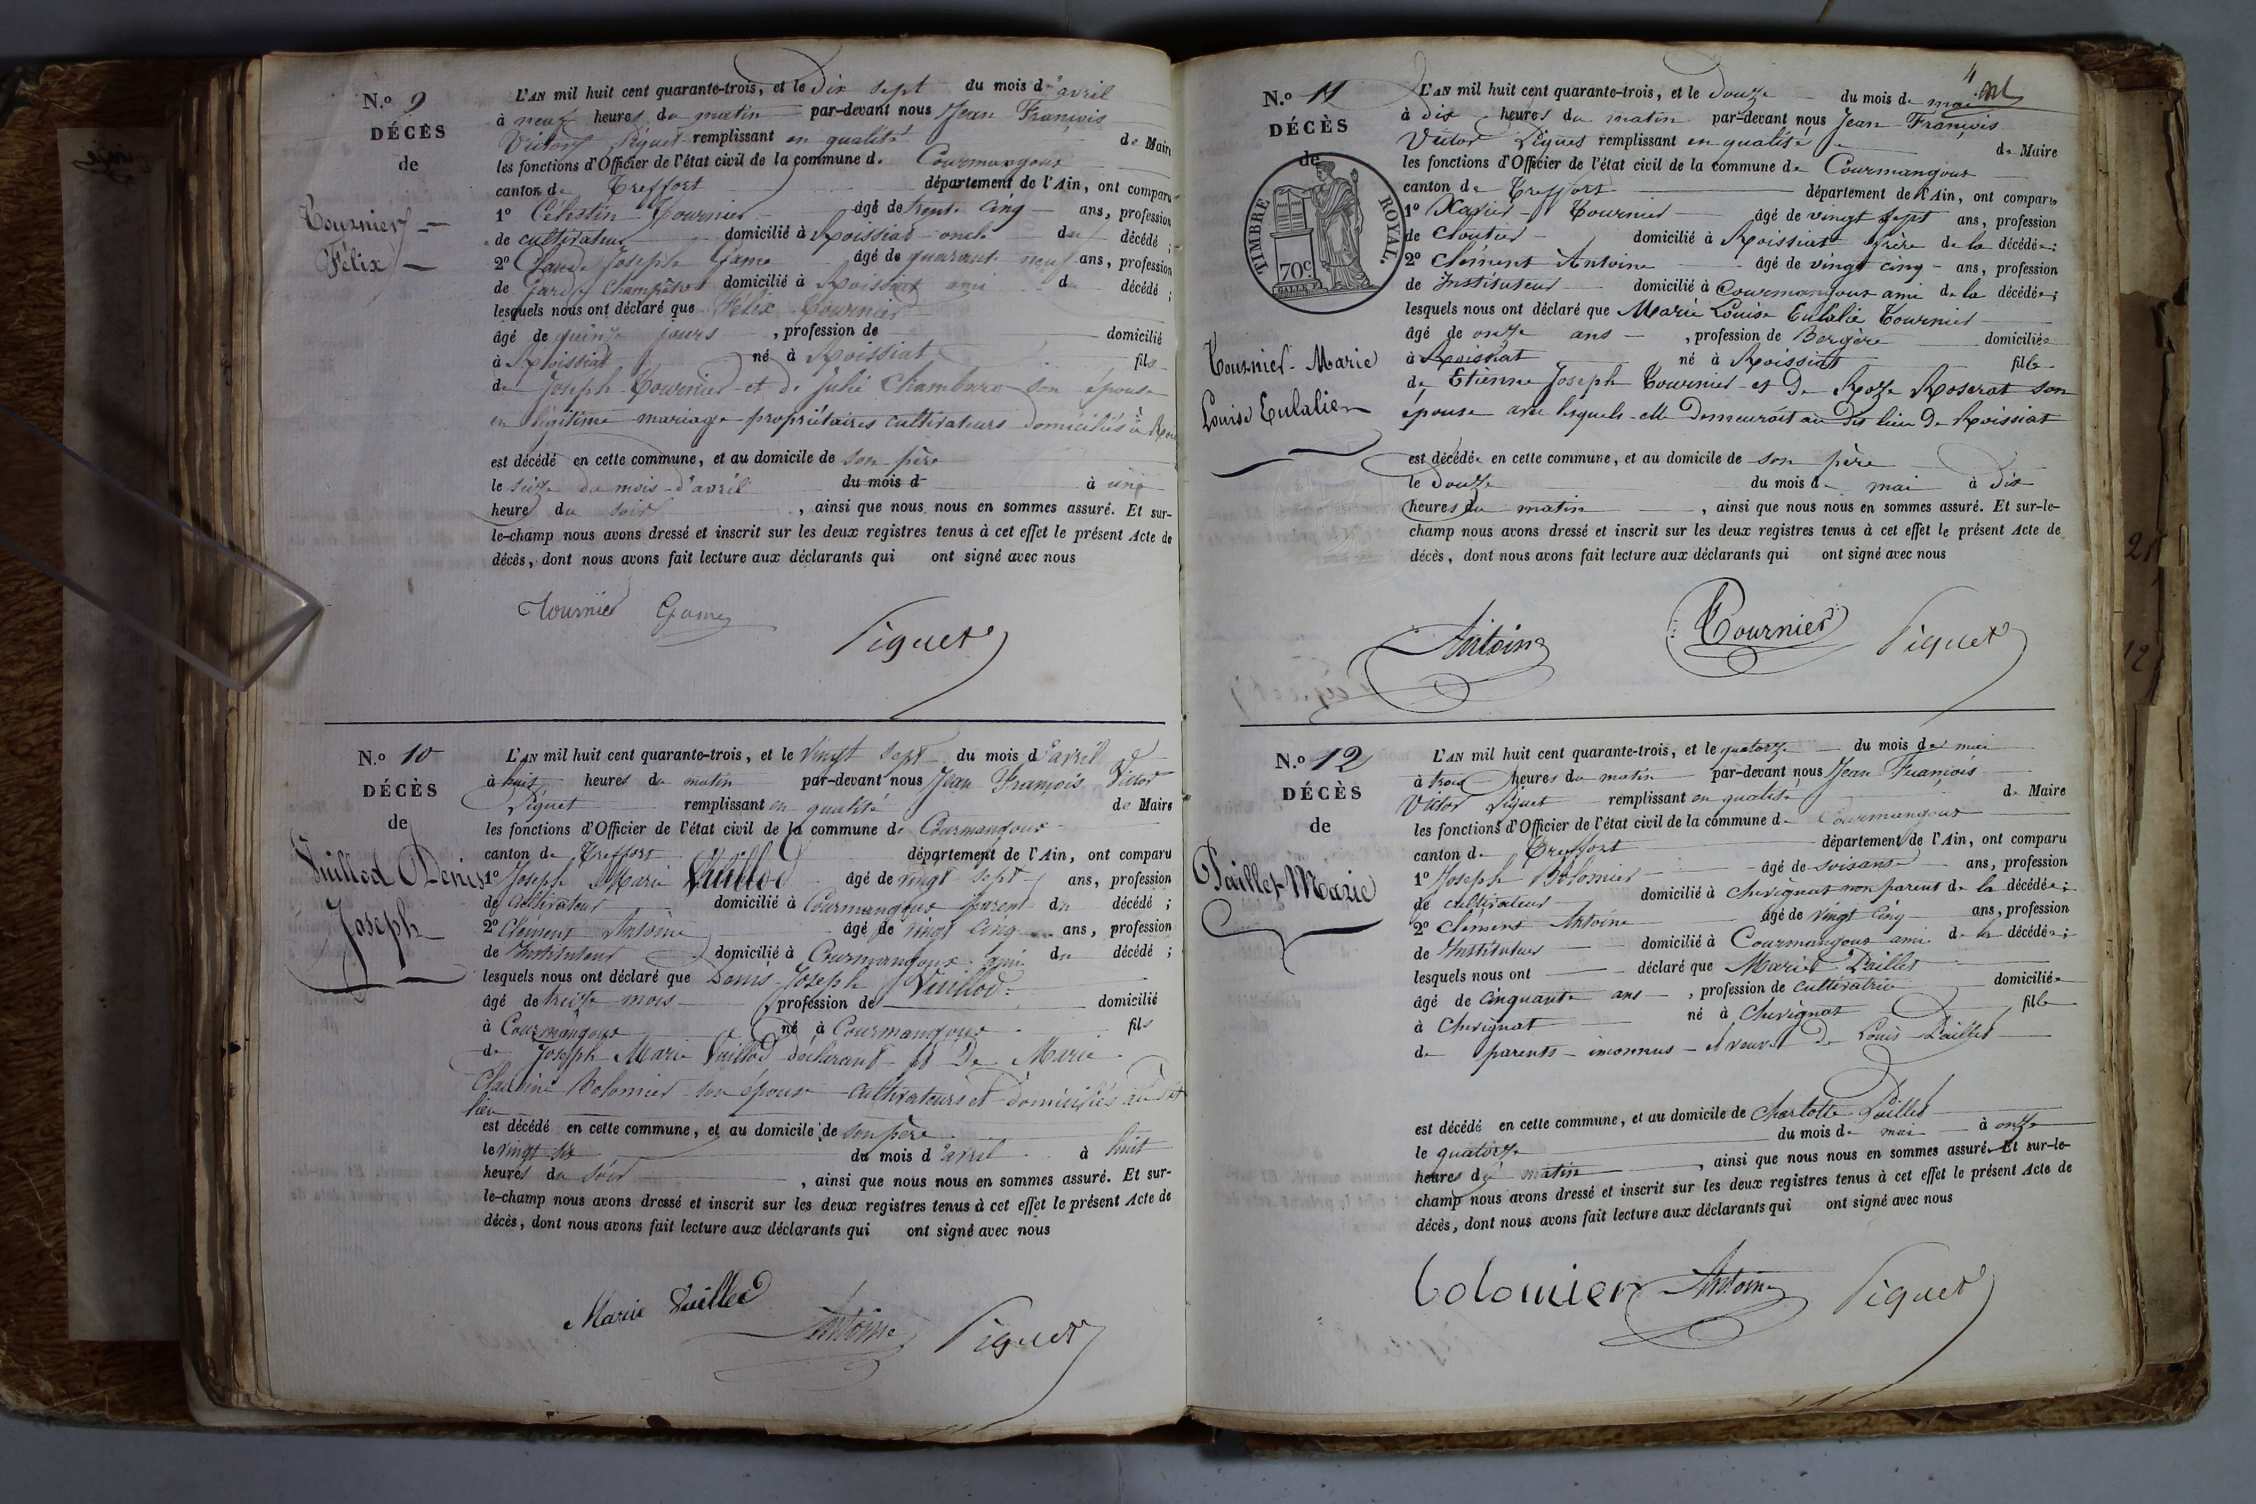 N.º 9
DÉCÈS
de
Tournier
Félix
L'AN mil huit cent quarante-trois, et le dix sept du mois d'avril
à neuf heures du matin par-devant nous Jean François
Victor Piquet remplissant en qualité de Maire
les fonctions d'Officier de l'état civil de la commune de Courmangoux
canton de Treffort département de l'Ain, ont comparu
1º Célestin Tournier âgé de trente cinq ans, profession
de cultivateur domicilié à Roissiat oncle du décédé ;
2º Claude Joseph Game âgé de quarante neuf ans, profession
de Garde champêtre domicilié à Roissiat ami du décédé ;
lesquels nous ont déclaré que Félix Tournier
âgé de quinze jours , profession de domicilié
à Roissiat né à Roissiat fils
de Joseph Tournier et de Julie Chambard son épouse
en légitime mariage propriétaires cultivateurs domiciliés à
est décédé en cette commune, et au domicile de son père
le seize du mois d'avril du mois d à une
heure du soir , ainsi que nous nous en sommes assuré. Et sur-
le-champ nous avons dressé et inscrit sur les deux registres tenus à cet effet le présent Acte de
décès, dont nous avons fait lecture aux déclarants qui ont signé avec nous
Tournier Game Piquet
N.º 10
DÉCÈS
de
Vuillod Denis
Joseph
L'AN mil huit cent quarante-trois, et le vingt sept du mois d'avril
à huit heures du matin par-devant nous Jean François Victor
Piquet remplissant en qualité de Maire
les fonctions d'Officier de l'état civil de la commune de Courmangoux
canton de Treffort département de l'Ain, ont comparu
1º Joseph Marie Vuillod âgé de vingt sept ans, profession
de cultivateur domicilié à Courmangoux parent du décédé ;
2º Clément Antoine âgé de vingt cinq ans, profession
de Instituteur domicilié à Courmangoux ami du décédé ;
lesquels nous ont déclaré que Denis Joseph Vuillod
âgé de treize mois profession de domicilié
à Courmangoux né à Courmangoux fils
de Joseph Marie Vuillod déclarant et de Marie
Claudine Bolomier son épouse cultivateurs et domiciliés au dit
lieu
est décédé en cette commune, et au domicile de son père
le vingt six du mois d'avril à huit
heures du soir , ainsi que nous nous en sommes assuré. Et sur-
le-champ nous avons dressé et inscrit sur les deux registres tenus à cet effet le présent Acte de
décès, dont nous avons fait lecture aux déclarants qui ont signé avec nous
Marie Vuillod Antoine Piquet
4
N.º 11
DÉCÈS
de
TIMBRE ROYAL.
70c
Tournier Marie
Louise Eulalie
L'AN mil huit cent quarante-trois, et le douze du mois de mai
à dix heures du matin par-devant nous Jean François
Victor Piquet remplissant en qualité de Maire
les fonctions d'Officier de l'état civil de la commune de Courmangoux
canton de Treffort département de l'Ain, ont comparu
1º Xavier Tournier âgé de vingt sept ans, profession
de Cloutier domicilié à Roissiat frère de la décédée ;
2º Clément Antoine âgé de vingt cinq ans, profession
de Instituteur domicilié à Courmangoux ami de la décédée ;
lesquels nous ont déclaré que Marie Louise Eulalie Tournier
âgé de onze ans , profession de Bergère domiciliée
à Roissiat né à Roissiat fille
de Etienne Joseph Tournier et de Roze Roserat son
épouse avec lesquels elle demeurait au dit lieu de Roissiat
est décédée en cette commune, et au domicile de son père
le douze du mois de mai à dix
heures du matin , ainsi que nous nous en sommes assuré. Et sur-le-
champ nous avons dressé et inscrit sur les deux registres tenus à cet effet le présent Acte de
décès, dont nous avons fait lecture aux déclarants qui ont signé avec nous
Antoine Tournier Piquet
N.º 12
DÉCÈS
de
Paillet Marie
L'AN mil huit cent quarante-trois, et le quatorze du mois de mai
à trois heures du matin par-devant nous Jean François
Victor Piquet remplissant en qualité de Maire
les fonctions d'Officier de l'état civil de la commune de Courmangoux
canton de Treffort département de l'Ain, ont comparu
1º Joseph Bolomier âgé de soixante ans, profession
de cultivateur domicilié à Chevignat non parent de la décédée ;
2º Clément Antoine âgé de vingt cinq ans, profession
de Instituteur domicilié à Courmangoux ami de la décédée ;
lesquels nous ont déclaré que Marie Paillet
âgé de cinquante ans , profession de cultivatrice domiciliée
à Chevignat né à Chevignat fille
de parents inconnus et veuve de Louis Paillet
est décédé en cette commune, et au domicile de Charlotte Paillet
le quatorze du mois de mai à onze
heures du matin , ainsi que nous nous en sommes assuré. Et sur-le-
champ nous avons dressé et inscrit sur les deux registres tenus à cet effet le présent Acte de
décès, dont nous avons fait lecture aux déclarants qui ont signé avec nous
bolomier Antoine Piquet